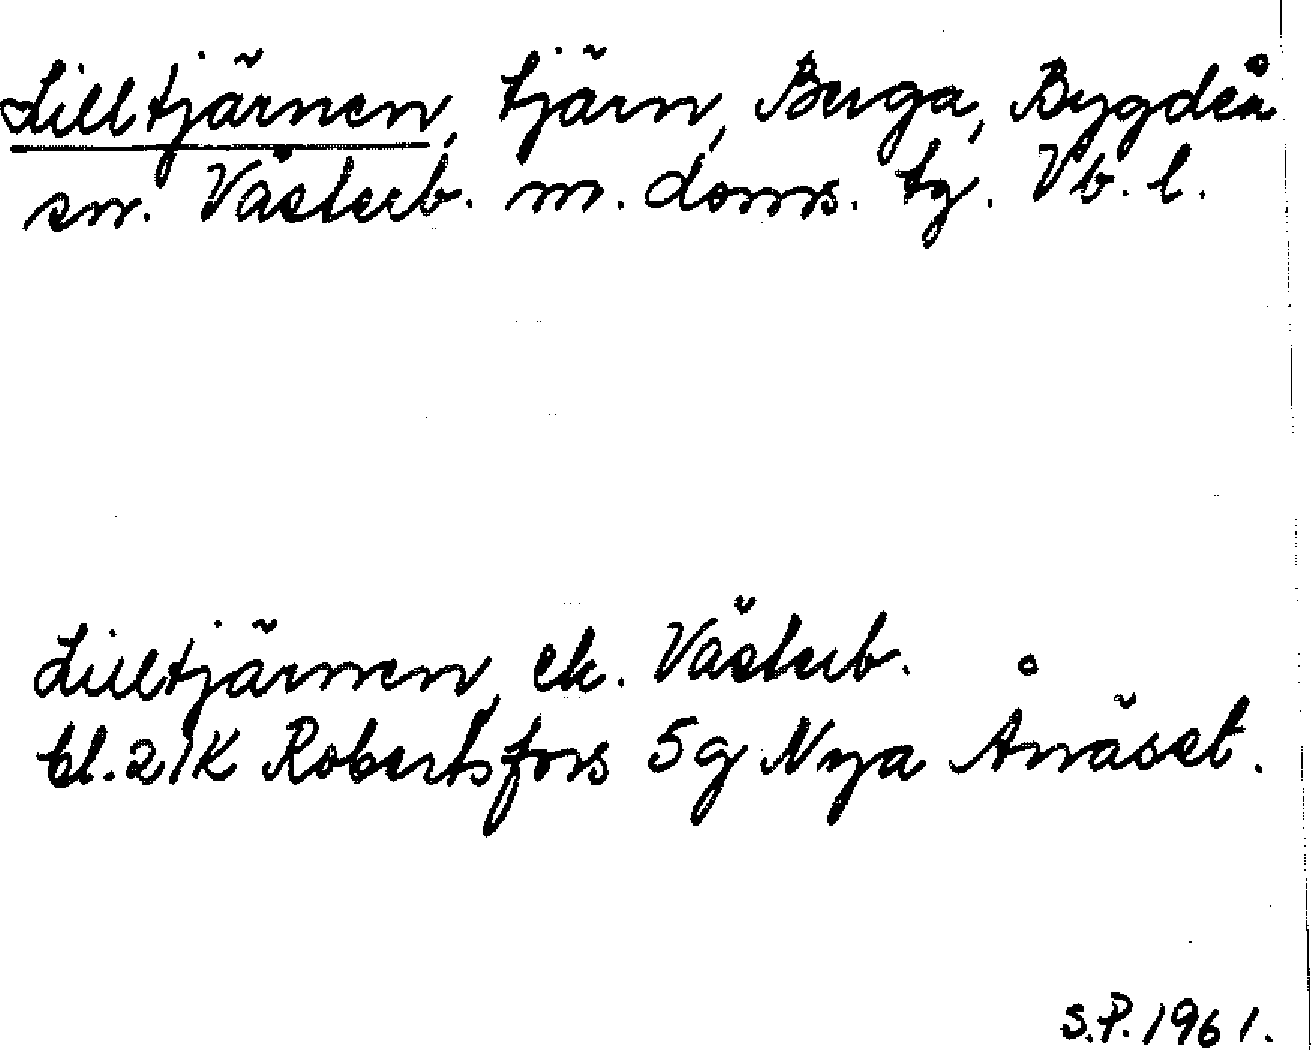 Lilltjärnen, tjärn, Buga, Bygdeå
sn. Västerb. m. doms. tg. Vb. l.
Lilltjärnen, ek. Västerb.
bl. 21K Robertsfors 5g Nya Ånäset.
S.P. 1961.